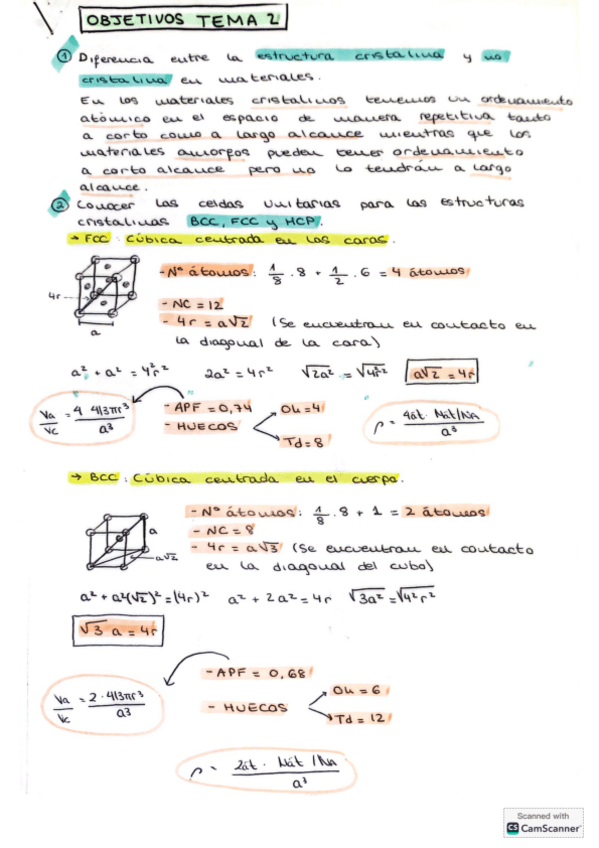 OBJETIVOS TEMA 2
① Diferencia entre la estructura cristalina y no
cristalina en materiales.
En los materiales cristalinos tenemos un ordenamiento
atómico en el espacio de manera repetitiva tanto
a corto como a largo alcance mientras que los
materiales amorfos pueden tener ordenamiento
a corto alcance pero no lo tendrán a largo
alcance.
② Conocer las celdas unitarias para las estructuras
cristalinas BCC, FCC y HCP.
→ FCC: Cúbica centrada en las caras.
- Nº átomos: 1/8 · 8 + 1/2 · 6 = 4 átomos
4r
- NC = 12
- 4r = a√2 (Se encuentran en contacto en
la diagonal de la cara)
a
a² + a² = 4²r² 2a² = 4r² √2a² = √4²r² a√2 = 4r
Va/Vc = 4 · 4/3πr³/a³
- APF = 0,74
- HUECOS
Oh = 4
Td = 8
ρ = 4át · Mát/NA/a³
→ BCC: Cúbica centrada en el cuerpo.
- Nº átomos: 1/8 · 8 + 1 = 2 átomos
- NC = 8
a
a√2
- 4r = a√3 (Se encuentran en contacto
en la diagonal del cubo)
a² + a²(√2)² = (4r)² a² + 2a² = 4r √3a² = √4²r²
√3 a = 4r
- APF = 0,68
Va/Vc = 2 · 4/3πr³/a³
- HUECOS
Oh = 6
Td = 12
ρ = 2át · Mát/NA/a³
Scanned with
CS CamScanner